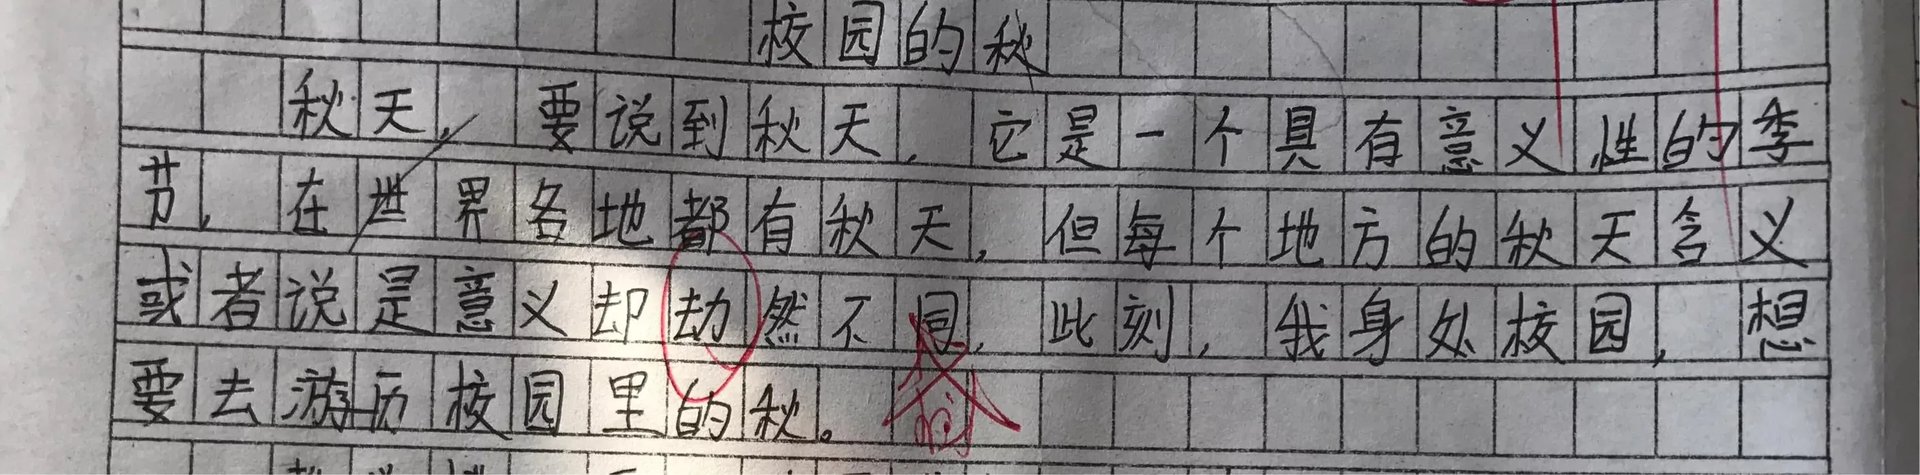 校园的秋
秋天，要说到秋天，它是一个具有意义性的季
节，在世界各地都有秋天，但每个地方的秋天含义
或者说是意义却劫然不同，此刻，我身处校园，想
要去游历校园里的秋。